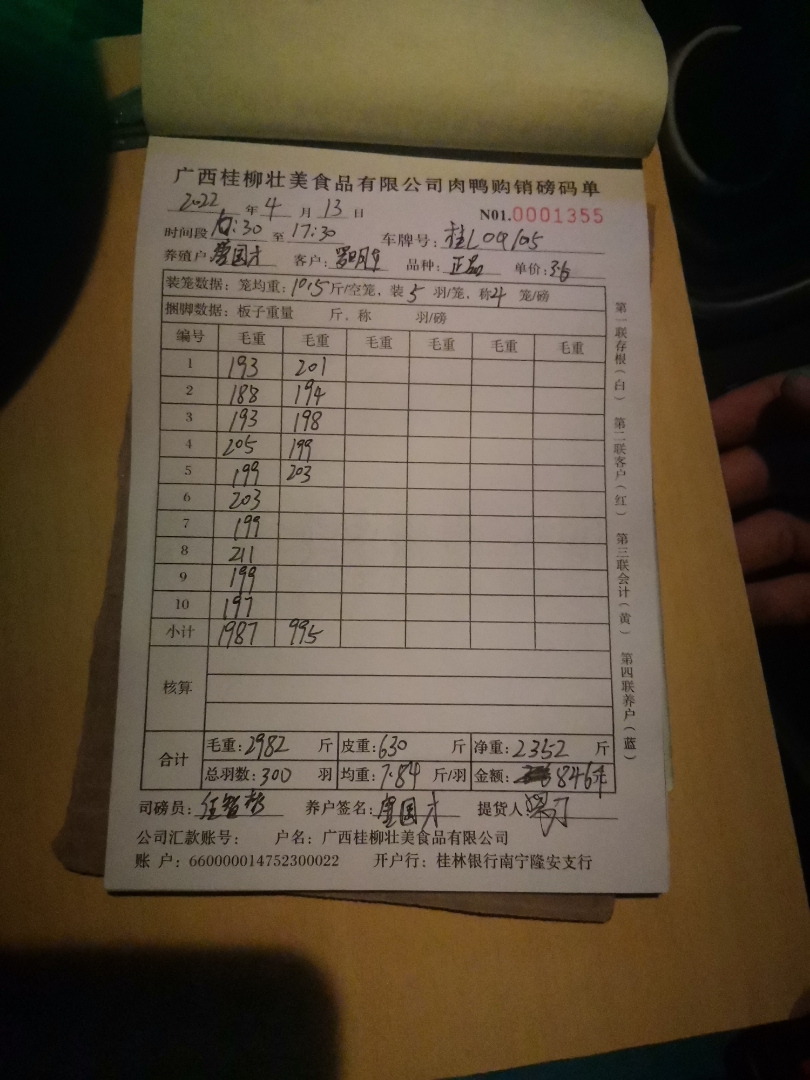 广西桂柳壮美食品有限公司肉鸭购销磅码单
2022 年 4 月 13 日 N01.0001355
时间段 :30 至 17:30 车牌号: 桂L09105
养殖户 国才 客户: 品种: 正品 单价: 36
装笼数据: 笼均重: 10.5 斤/空笼, 装 5 羽/笼, 称 4 笼/磅
捆脚数据: 板子重量 斤, 称 羽/磅
编号 毛重 毛重 毛重 毛重 毛重 毛重
1 193 201
2 188 194
3 193 198
4 205 199
5 199 203
6 203
7 199
8 211
9 199
10 197
小计 1987 995
核算
合计 毛重: 2982 斤 皮重: 630 斤 净重: 2352 斤
总羽数: 300 羽 均重: 7.84 斤/羽 金额: 8467
司磅员: 养户签名: 国才 提货人
公司汇款账号: 户名: 广西桂柳壮美食品有限公司
账 户: 660000014752300022 开户行: 桂林银行南宁隆安支行
第一联存根(白) 第二联客户(红) 第三联会计(黄) 第四联养户(蓝)